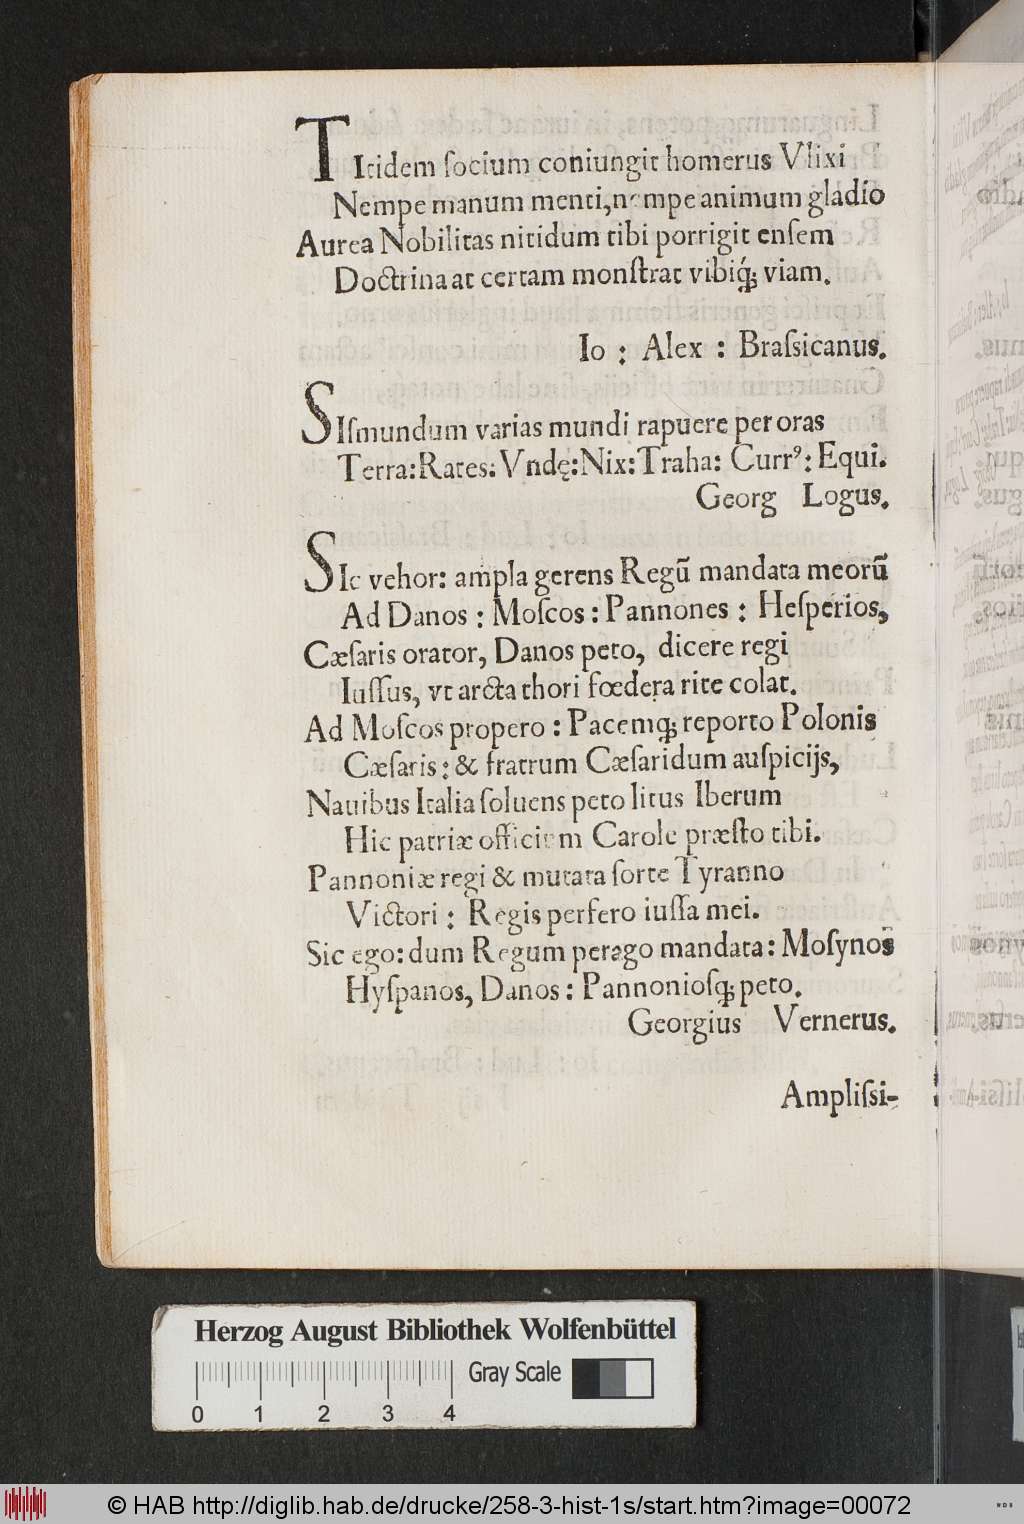 TItidem ſocium coniungit homerus Vlixi
Nempe manum menti, nempe animum gladio
Aurea Nobilitas nitidum tibi porrigit enſem
Doctrina at certam monſtrat vbiq́; viam.
Io : Alex : Braſsicanus.
SIſmundum varias mundi rapuere per oras
Terra: Rates: Vndę: Nix: Traha: Currꝰ: Equi.
Georg Logus.
SIc vehor: ampla gerens Regū mandata meorū
Ad Danos : Moſcos : Pannones : Heſperios,
Cæſaris orator, Danos peto, dicere regi
Iuſſus, vt arcta thori fœdera rite colat.
Ad Moſcos propero : Pacemq; reporto Polonis
Cæſaris : & fratrum Cæſaridum auſpicijs,
Nauibus Italia ſoluens peto litus Iberum
Hic patriæ officium Carole præſto tibi.
Pannoniæ regi & mutata ſorte Tyranno
Victori : Regis perfero iuſſa mei.
Sic ego: dum Regum perago mandata: Moſynos
Hyſpanos, Danos : Pannonioſq; peto.
Georgius Vernerus.
Ampliſsi-
Herzog August Bibliothek Wolfenbüttel
Gray Scale
0 1 2 3 4
© HAB http://diglib.hab.de/drucke/258-3-hist-1s/start.htm?image=00072